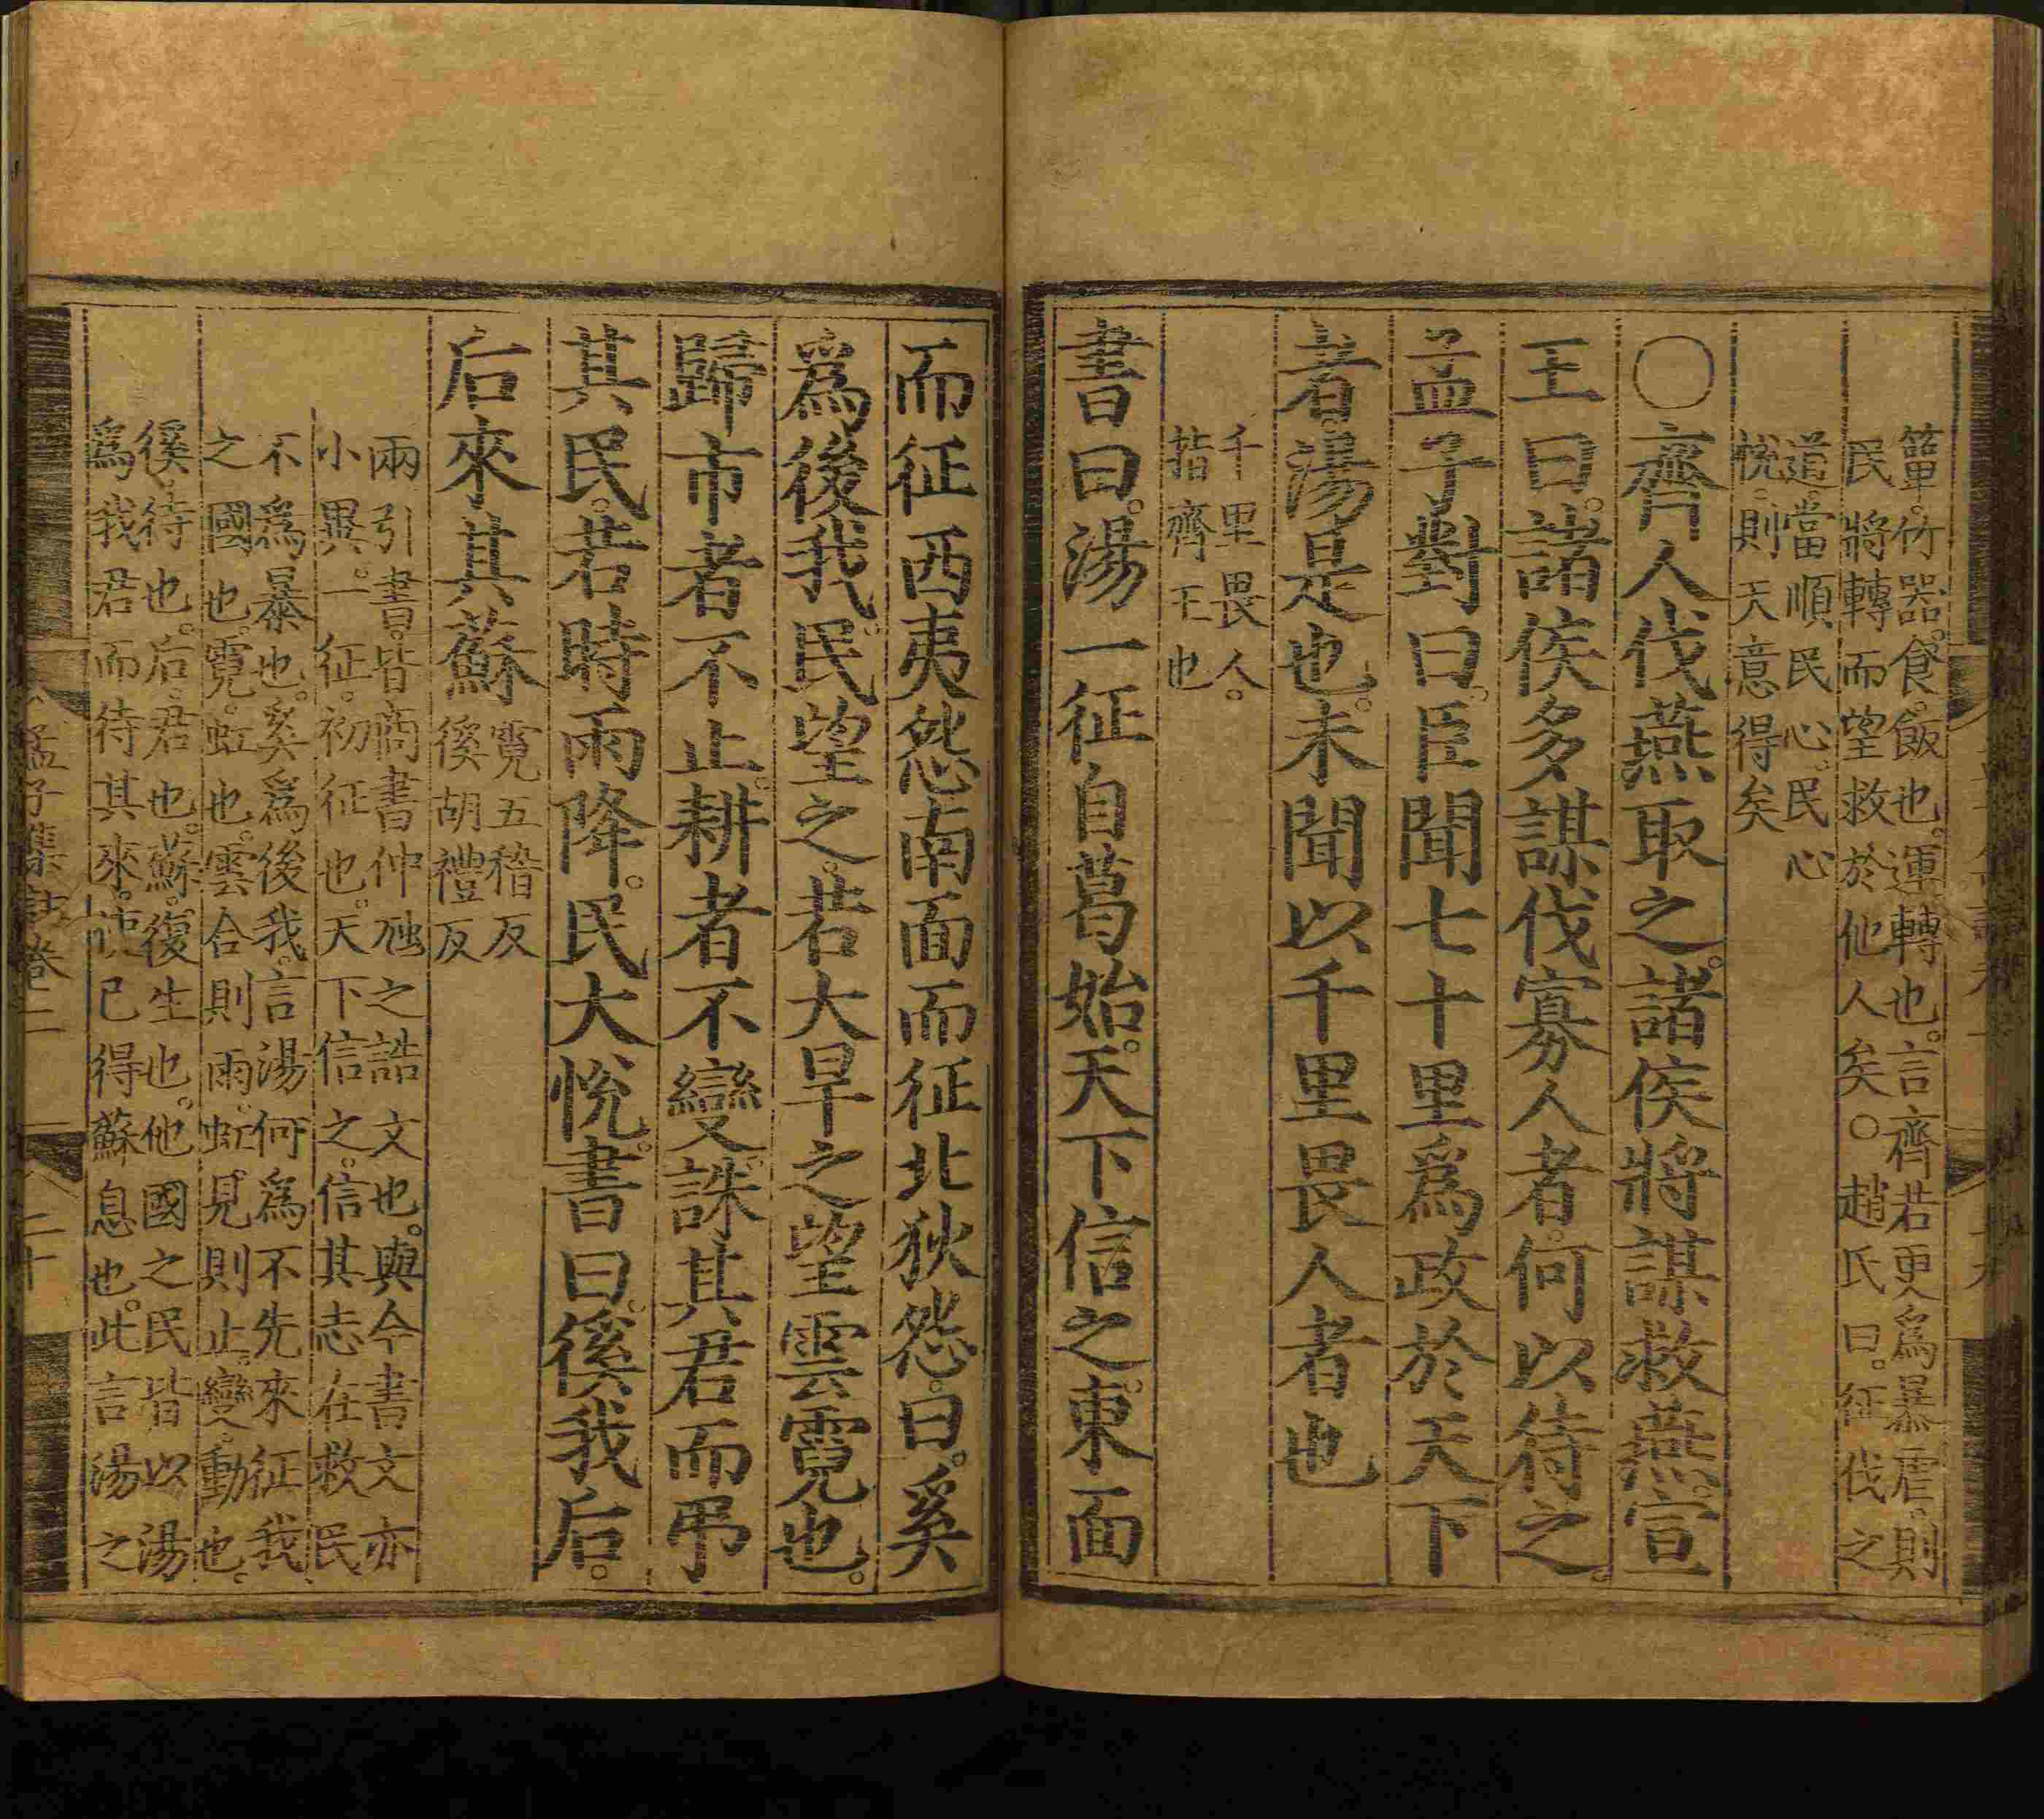 簞。竹器。食。飯也。運。轉也。言齊若更爲暴虐。則
民將轉而望救於他人矣。○趙氏曰。征伐之
道。當順民心。民心
悅。則天意得矣
○齊人伐燕取之。諸侯將謀救燕。宣
王曰。諸侯多謀伐寡人者。何以待之。
孟子對曰。臣聞七十里爲政於天下
者。湯是也。未聞以千里畏人者也
千里畏人。
指齊王也
書曰。湯一征自葛始。天下信之。東面
而征西夷怨南面而征北狄怨。曰。奚
爲後我。民望之。若大旱之望雲霓也。
歸市者不止。耕者不變。誅其君而弔
其民。若時雨降。民大悅。書曰。徯我后。
后來其蘇
霓五稽反
徯胡禮反
兩引書。皆商書仲虺之誥文也。與今書文亦
小異。一征。初征也。天下信之。信其志在救民
不爲暴也。奚爲後我。言湯何爲不先來征我
之國也。霓。虹也。雲合則雨。虹見則止。變。動也。
徯。待也。后。君也。蘇。復生也。他國之民皆以湯
爲我君而待其來。已得蘇息也。此言湯之
孟子集註卷二 二十